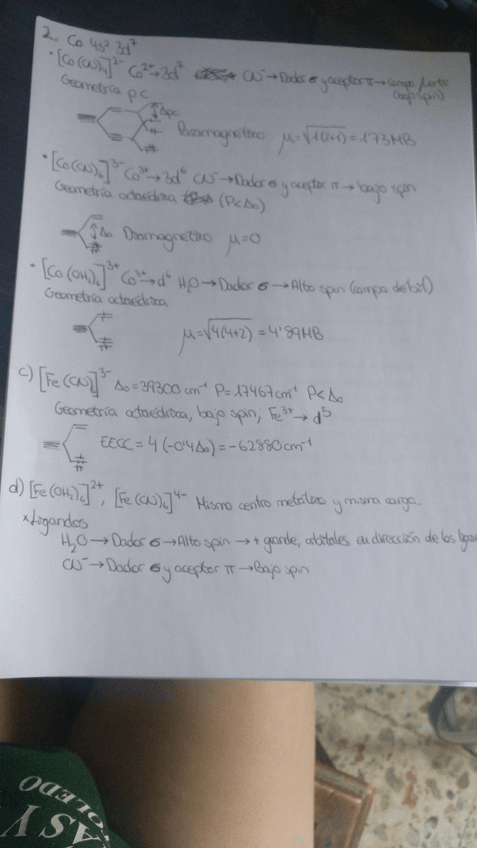 2. Co 4s² 3d⁷
· [Co(CN)₄]²⁻ Co²⁺→3d⁷ CN⁻→Dador σ y aceptor π→campo fuerte
(bajo spin)
Geometría pc
Δpc
Paramagnético μ=√1(2+1) = 1'73 MB
· [Co(CN)₆]³⁻ Co³⁺→3d⁶ CN⁻→Dador σ y aceptor π → bajo spin
Geometría octaédrica (P<Δo)
Δo Diamagnético μ=0
· [Co(OH₂)₆]³⁺ Co³⁺→d⁶ H₂O→Dador σ→Alto spin (campo débil)
Geometría octaédrica
μ=√4(4+2) = 4'89 MB
c) [Fe(CN)₆]³⁻ Δo=39300 cm⁻¹ P=17467 cm⁻¹ P<Δo
Geometría octaédrica, bajo spin, Fe³⁺→d⁵
EECC = 4(-0'4Δo) = -62880 cm⁻¹
d) [Fe(OH₂)₆]²⁺, [Fe(CN)₆]⁴⁻ Mismo centro metálico y misma carga
*Ligandos
H₂O→Dador σ→Alto spin→+ grande, orbitales en dirección de los
CN⁻→Dador σ y aceptor π→Bajo spin
ASY
TOLEDO